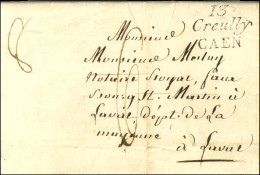 13
Creully
CAEN
Monsieur
Monsieur
Notaire Royal, faux
Bourg St. Martin à
Laval, dépt. de La
mayenne
à Laval